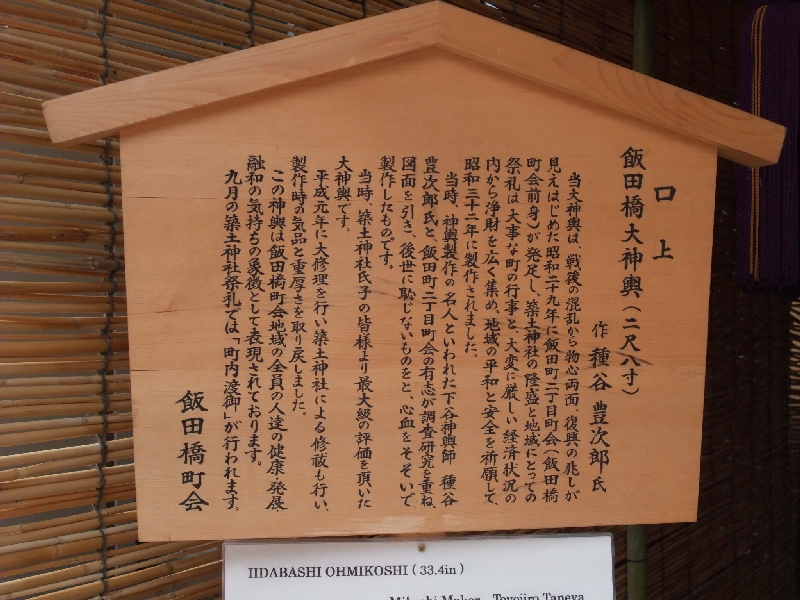 口上
飯田橋大神輿(二尺八寸)
作 種谷 豊次郎 氏
当大神輿は、戦後の混乱から物心両面、復興の兆しが
見えはじめた昭和二十九年に飯田町二丁目町会(飯田橋
町会前身)が発足し、築土神社の隆盛と地域にとっての
祭礼は大事な町の行事と、大変に厳しい経済状況の
内から浄財を広く集め、地域の平和と安全を祈願して、
昭和三十二年に製作されました。
当時、神輿製作の名人といわれた下谷神輿師 種谷
豊次郎氏と、飯田町二丁目町会の有志が調査研究を重ね、
図面を引き、後世に恥じないものをと、心血をそそいで
製作したものです。
当時、築土神社氏子の皆様より最大級の評価を頂いた
大神輿です。
平成元年に大修理を行い築土神社による修祓も行い、
製作時の気品と重厚さを取り戻しました。
この神輿は飯田橋町会地域の全員の人達の健康、発展
融和の気持ちの象徴として表現されております。
九月の築土神社祭礼では「町内渡御」が行われます。
飯田橋町会
IIDABASHI OHMIKOSHI ( 33.4in )
Mikoshi Maker Toyojiro Taneya